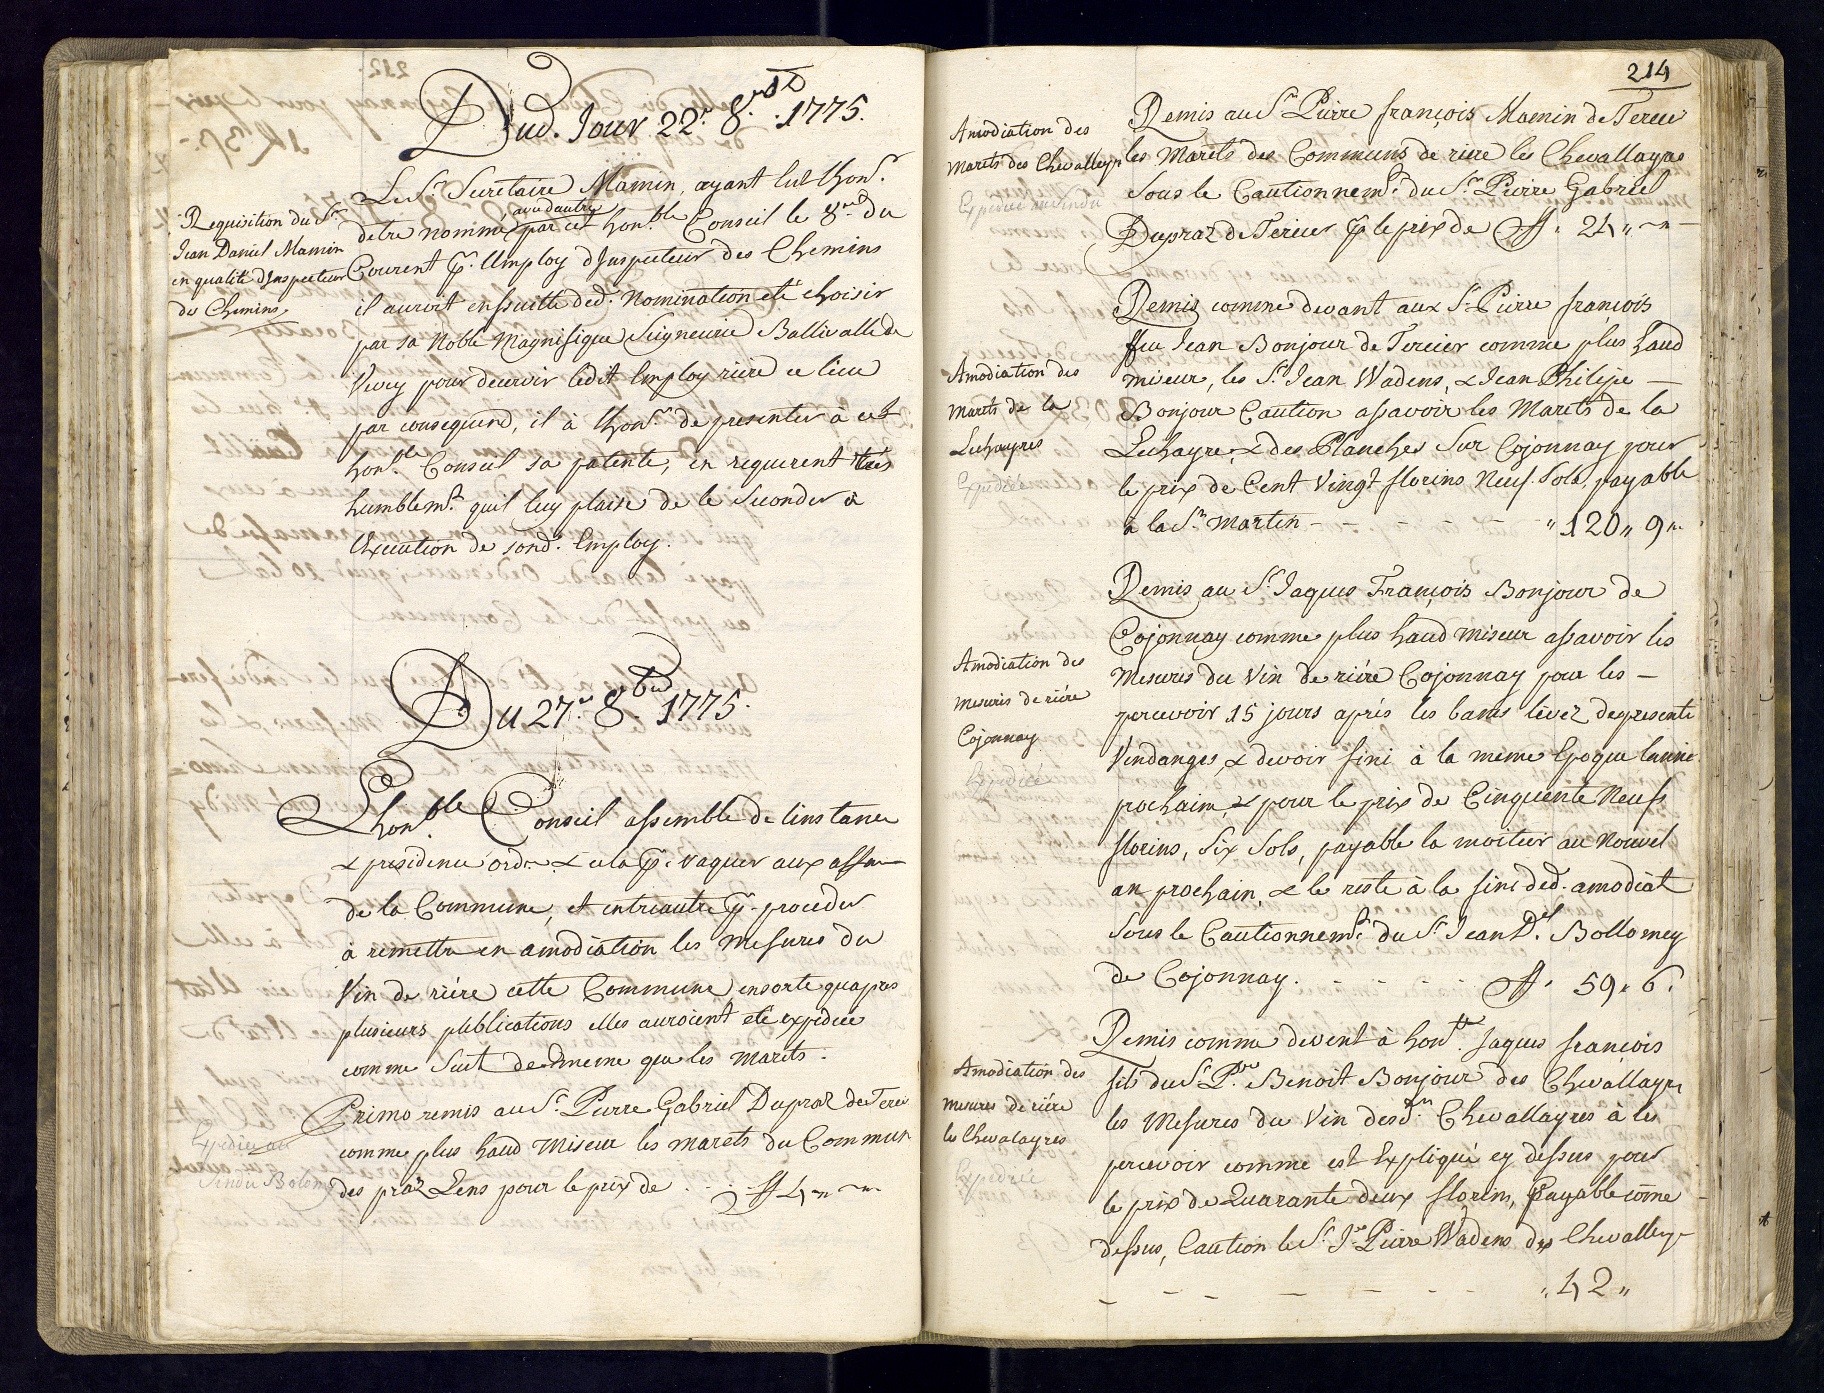 Dud. Jour 22.e 8.bre 1775.
Requisition du Sr.
Jean Daniel Mamin
en qualité d'Inspecteur
des Chemins.
Le Sr. Secretaire Mamin, ayant eut lhonr.
avec dautre
detre nommé par cet honble. Conseil le 8.me du
Courent pr. lemploy d'Inspecteur des Chemins
il auroit ensuitte ded. nomination eté choisir
par sa Noble Magnifique Seigneurie Ballivalle de
Vevey pour decervir ledit Employ riére ce lieu
par consequend, il à lhonr. de presenter à cet
honble. Conseil sa patente, en requerent trés
humblemt. quil luy plaise de le seconder à
Execution de sond. Employ.
Du 27.e 8.bre 1775.
Lhonble. Conseil assemblé de linstance
& presidence ordre. & cela pr. vaquer aux affaire
de la Commune, et entreautre pr. proceder
à remettre en amodiation les mesures du
Vin de riére cette Commune, ensorte quapres
plusieurs publications elles auroient eté expediée
comme suit de meme que les marets.
Expediée au
Sindic Bolomey
Primo remis au Sr. Pierre Gabriel Dupraz de Terci
comme plus haud miseur les marets du Commun
des praz Lens pour le prix de ff 4
214
Amodiation des
Marets des Chevalleyres
Expediée au Sindic
Remis au Sr. Pierre françois Mamin de Tercie
les Marets des Communs de riere les Chevallayres
Sous le Cautionnemt. du Sr. Pierre Gabriel
Dupraz de Tercier pr. le prix de ff. 24
Amodiation des
marets de la
Lechayres
Expediée
Remis comme devant aux Sr. Pierre françois
ffeu Jean Bonjour de Tercier comme plus haud
miseur, les Sr. Jean Wadens, & Jean Philipe
Bonjour Caution assavoir les Marets de la
Lechayre, & des Planches sur Cojonnay pour
le prix de Cent Vingt florins Neuf Sols, payable
à la St. Martin - - - - - " 120 " 9
Amodiation des
mesures de riére
Cojonnay
Expediée
Remis au Sr. Jaques François Bonjour de
Cojonnay comme plus haud miseur assavoir les
Mesures du Vin de riére Cojonnay pour les
percevoir 15 jours aprés les bans levez de presente
Vendanges, & devoir fini à la meme Epoque lannée
prochaine, & pour le prix de Cinquente Neuf
florins, Six Sols, payable la moitier au Nouvel
an prochain, & le reste à la fine ded. amodiat
Sous le Cautionnemt. du Sr. Jean Dl. Bollomey
de Cojonnay. - - - - ff. 59 " 6.
Amodiation des
mesures de riére
les Chevalayres
Expediée
Remis comme devent à hont. Jaques françois
fils du Sr. Pre. Benoit Bonjour des Chevallayre
les Mesures du Vin desd. Chevallayres à les
percevoir comme est Expliqué cy dessus pour
le prix de Quarante deux florins, payable come
dessus, Caution le Sr. Jn. Pierre Wadens des Chevalleyr
- - - - - - - " 42 "